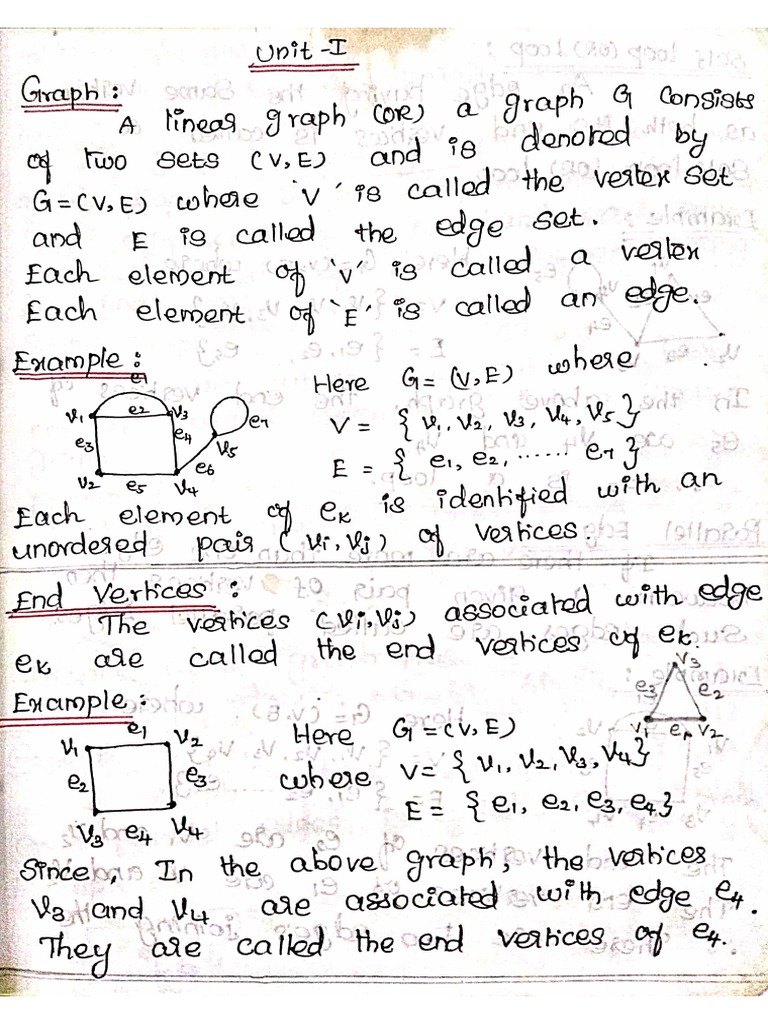 Unit-I
Graph:
A linear graph (OR) a graph G consists
of two sets (V, E) and is denoted by
G=(V, E) where 'V' is called the vertex set
and E is called the edge set.
Each element of 'V' is called a vertex
Each element of 'E' is called an edge.
Example:
Here G=(V, E) where
V = {v1, v2, v3, v4, v5}
E = {e1, e2, ...... e7}
e1
v1 e2 v3
e3 e4 e7
v5
e6
v2 e5 v4
Each element of ek is identified with an
unordered pair (vi, vj) of vertices.
End Vertices:
The vertices (vi, vj) associated with edge
ek are called the end vertices of ek.
v3
e3 e2
v1 e1 v2
Example:
e1
v1 v2
e2 e3
v3 e4 v4
Here G=(V, E)
where V= {v1, v2, v3, v4}
E = {e1, e2, e3, e4}
Since, In the above graph, the vertices
v3 and v4 are associated with edge e4.
They are called the end vertices of e4.